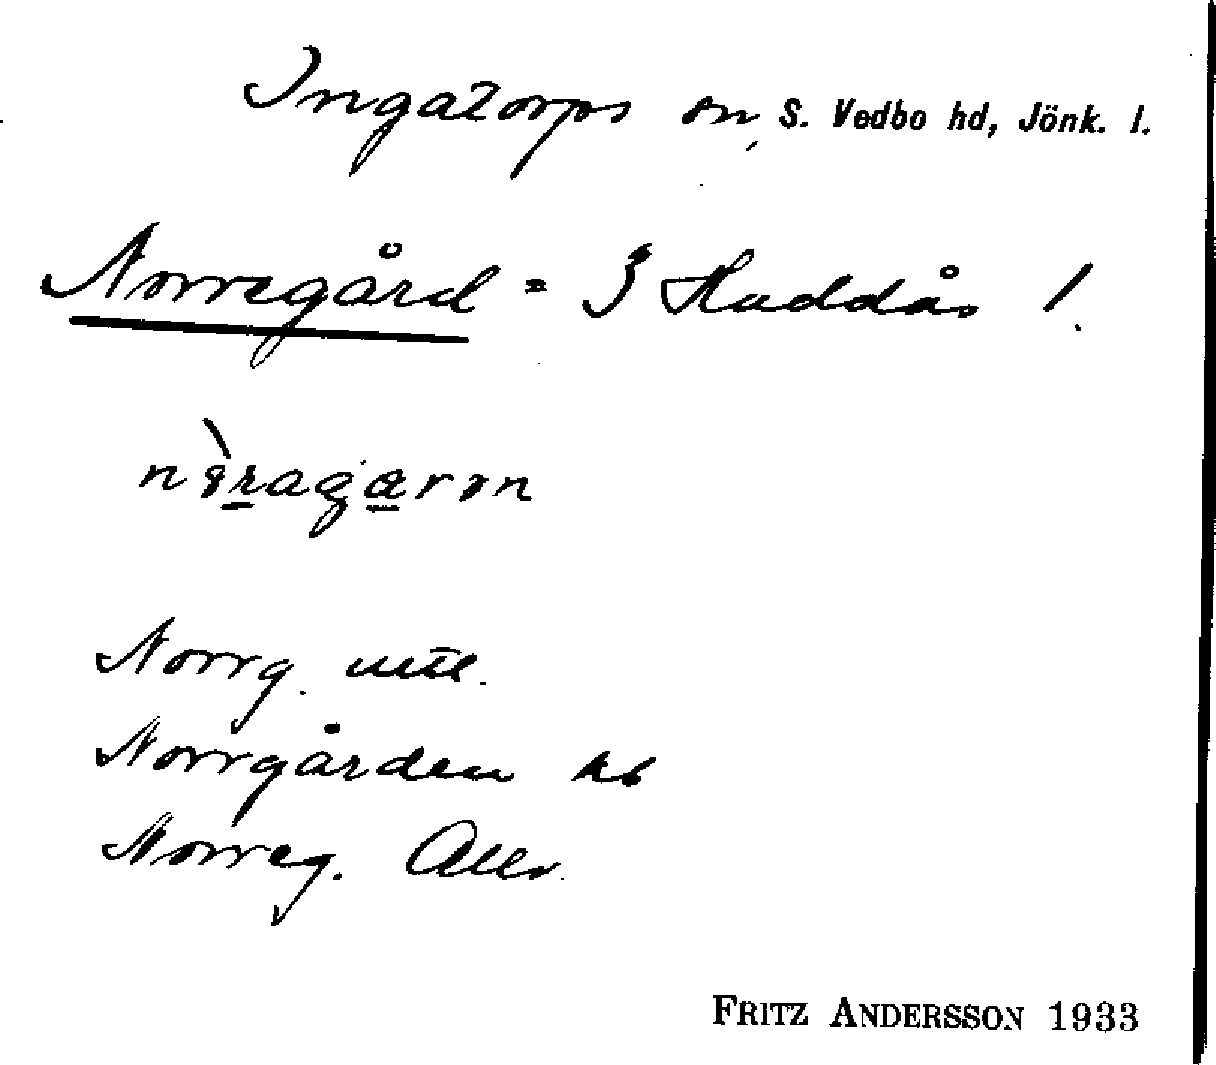 Ingatorps sn, S. Vedbo hd, Jönk. l.
Norregård = 3 Haddås 1.
nòragarən
Norrg. mtl.
Norrgården kb
Norreg. Allm.
FRITZ ANDERSSON 1933